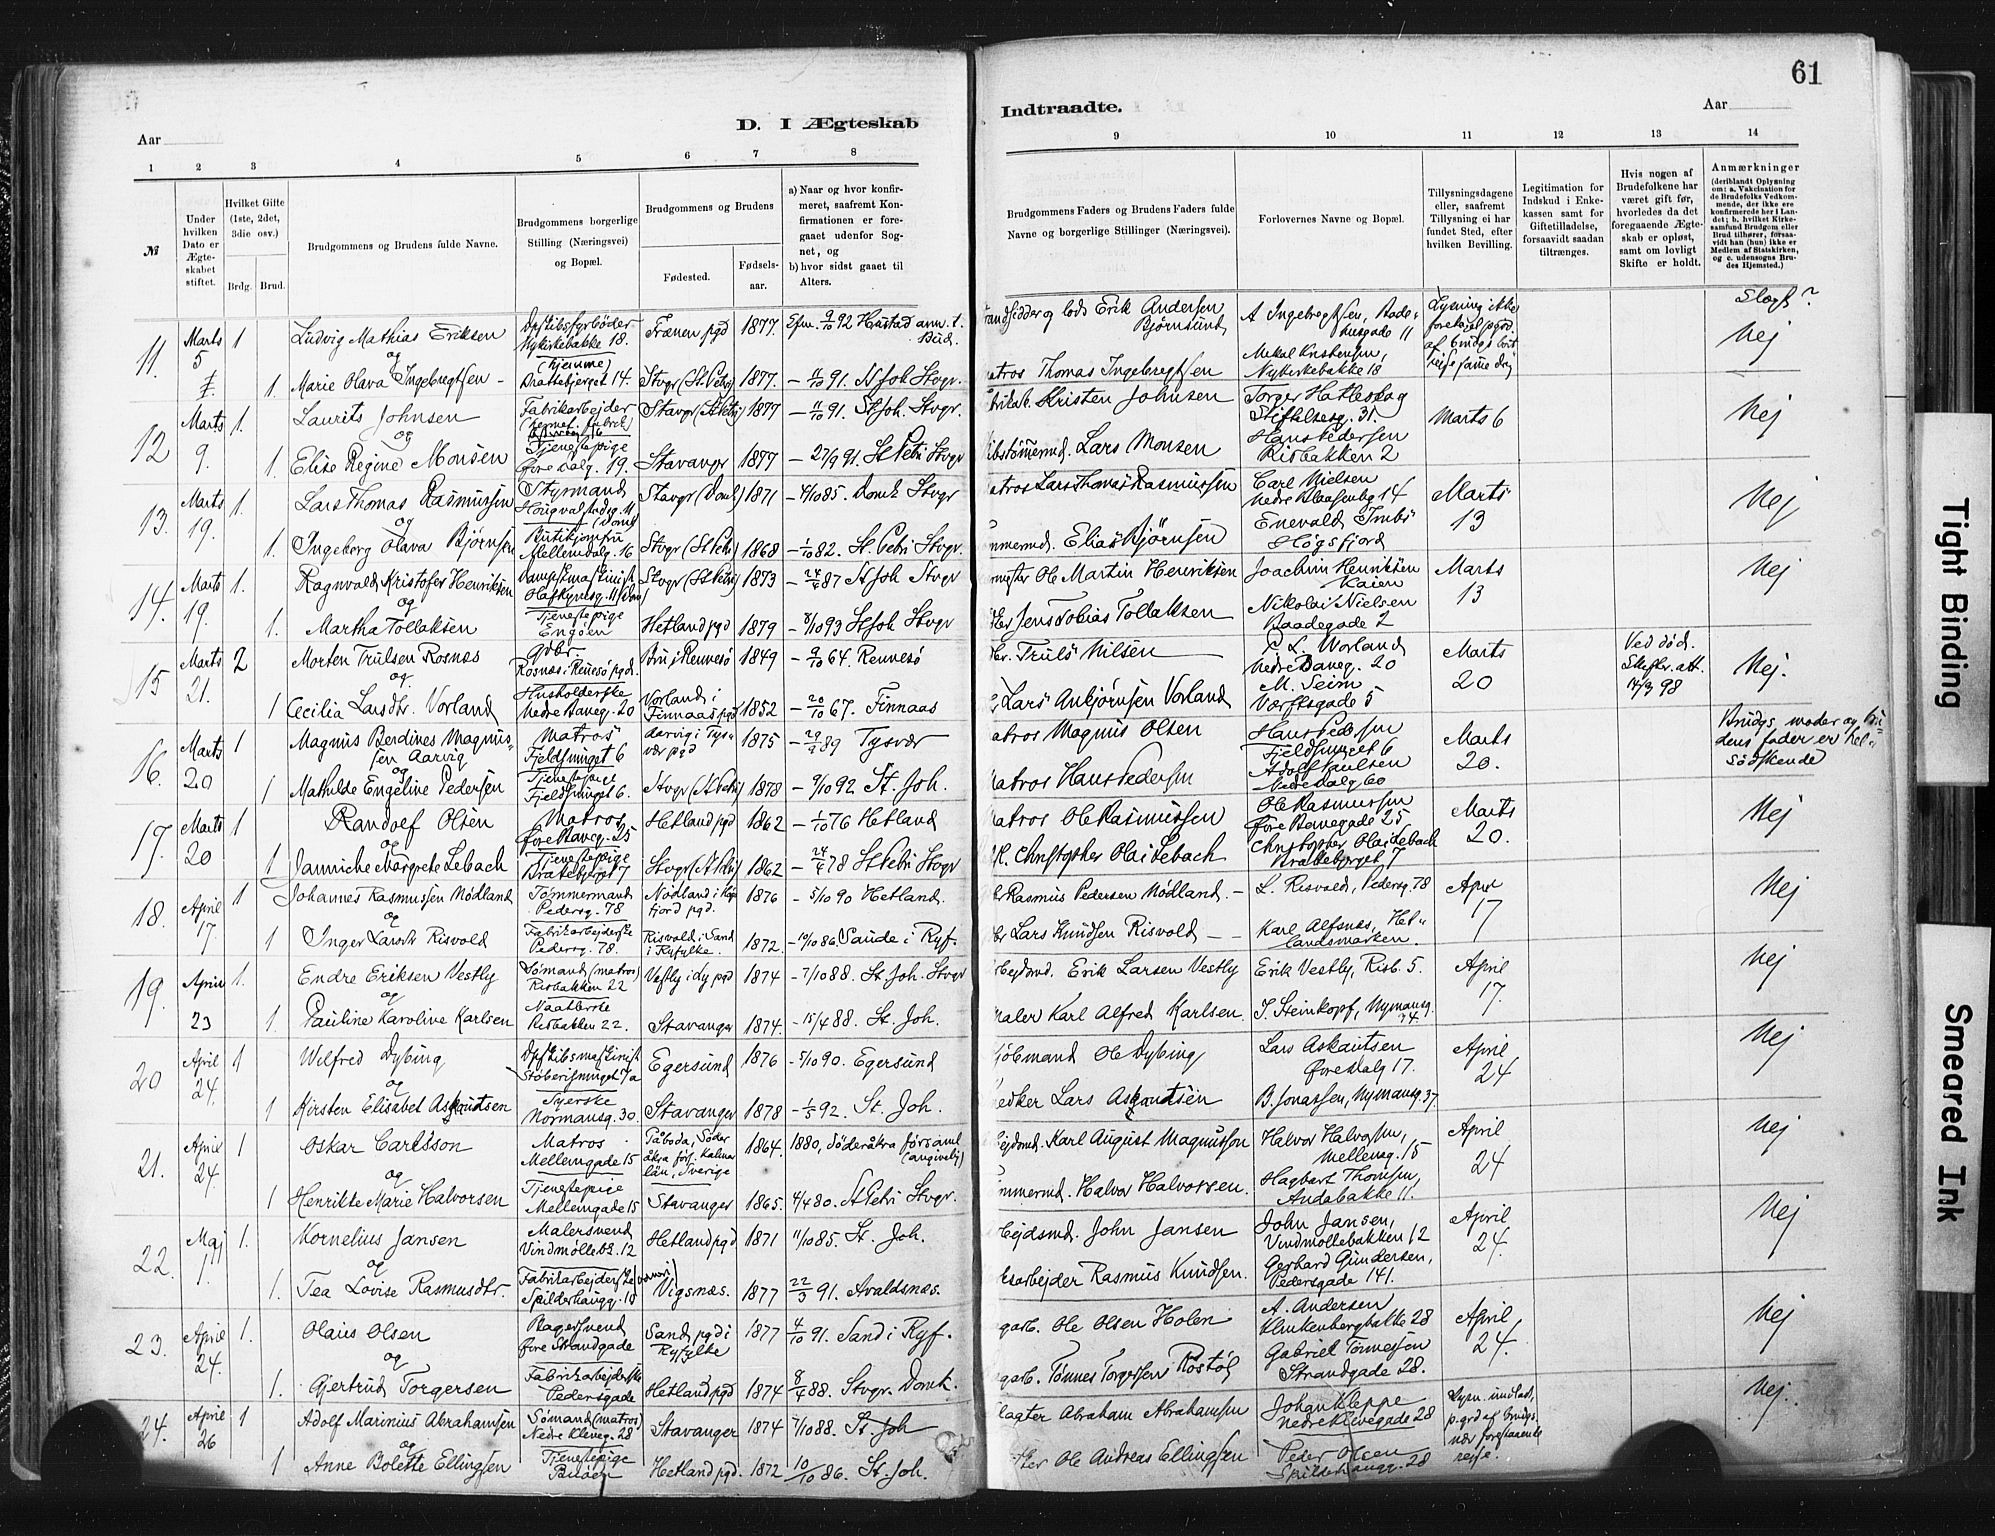 61
Aar
D. I Ægteskab
Indtraadte.
Aar
1 2 3 4 5 6 7 8
9 10 11 12 13 14
№
Under hvilken Dato er Ægteskabet stiftet.
Hvilket Gifte (1ste, 2det, 3die osv.)
Brdg. Brud.
Brudgommens og Brudens fulde Navne.
Brudgommens borgerlige Stilling (Næringsvei) og Bopæl.
Brudgommens og Brudens
Fødested.
Fødselsaar.
a) Naar og hvor konfirmeret, saafremt Konfirmationen er foregaaet udenfor Sognet, og
b) hvor sidst gaaet til Alters.
Brudgommens Faders og Brudens Faders fulde Navne og borgerlige Stillinger (Næringsvei).
Forlovernes Navne og Bopæl.
Tillysningsdagene eller, saafremt Tillysning ei har fundet Sted, efter hvilken Bevilling.
Legitimation for Indskud i Enkekassen samt for Giftetilladelse, forsaavidt saadan tiltrænges.
Hvis nogen af Brudefolkene har været gift før, hvorledes da det foregaaende Ægteskab er opløst, samt om lovligt Skifte er holdt.
Anmærkninger
(deriblandt Oplysning om: a. Vakcination for de Brudefolks Vedkommende, der ikke ere konfirmerede her i Landet; b. hvilket Kirkesamfund Brudgom eller Brud tilhører, forsaavidt han (hun) ikke er Medlem af Statskirken, og c. udensogns Brudes Hjemsted.)
Slægt?
11. Marts 5 1 Ludvig Mathias Eriksen Nykirkebakke 18. Frænen pgd 1877. 9/10 92 Hustad Bud. Erik Andersen Bjørnsund A Ingebregtsen, 11 Lysning ikke Nej
og
1. Marie Olava Ingebregtsen hjemme 14. Stvgr (St. Petri) 1877. - 11/10 91. St Joh Stvgr. Thomas Ingebregtsen Mikal Kristensen, Nykirkebakke 18
12 Marts 9. 1. Laurits Johnsen Fabrikarbejder Stavgr (St Petri) 1877 - 11/10 91. St Joh. Stvgr. Kristen Johnsen Torger Hatleskog 31. Marts 6 Nej
og
1. Elise Regine Monsen Tjenestepige Øvre Dalg. 19. Stavangr 1877 - 27/9 91. St Petri Stvgr Lars Monsen Hans Pedersen Risbakken 2
13. Marts 19. 1. Lars Thomas Rasmussen Styrmand Stavgr (Domk) 1871 - 4/10 85. Domk Stvgr Lars Thomas Rasmussen Carl Nielsen 14 Marts 13 Nej
og
1. Ingeborg Olava Bjørnsen Butikjomfru Mellemdalg. 16 Stvgr (St Petri) 1868 - 1/10 82. St. Petri Stvgr. Elias Bjørnsen Enevald Høgsfjord
14. Marts 19. 1. Ragnvald Kristofer Henriksen Stvgr (St Petri) 1873 87 St Joh Stvgr Ole Martin Henriksen Joachim Henriksen Kaien Marts 13 Nej
og
1. Martha Tollaksen Tjenestepige Engøen Hetland pgd 1879 - 8/10 93 St Joh Stvgr Jens Tobias Tollaksen Nikolai Nielsen Baadegade 2
15 Marts 21. 2 Morten Trulsen Rosnæs Gdbr. Rosnæs i Rennesø pgd. 1849 - 9/10 64. Rennesø Truls Nilsen C. L. Worland Nedre Baneg. 20 Marts 20 Ved død. 14/3 98 Nej.
og
1 Cecilia Larsdtr. Vorland Husholderske Nedre Baneg. 20 Vorland i Finnaas pgd 1852 - 20/10 67. Finnaas Lars Anbjørnsen Vorland M. Seim Værftsgade 5
16. Marts 20 1 Magnus Berdines Magnussen Aarvig Matros Fjeldsmuget 6 Aarvig i Tysvær pgd 1875 89 Tysvær Matros Magnus Olsen Hans Pedersen Fjeldsmuget 6 Marts 20. Brudgs moder og brudens fader er helsødskende
og
1 Mathilde Engeline Pedersen Tjenestepige Fjeldsmuget 6. Stvgr (St Petri) 1878 - 9/10 92 St. Joh. Matros Hans Pedersen Adolf Paulsen Nedre Dalg 60
17. Marts 20 1 Randolf Olsen Matros Øvre Baneg. 25 Hetland pgd 1862 - 1/10 76 Hetland Matros Ole Rasmussen Ole Rasmussen Øvre Banegade 25 Marts 20. Nej
og
1 Janniche Margrete Lebach Tjenestepige 7 Stvgr (St Petri) 1862 - 24/4 78 St Petri Stvgr Christopher Olai Lebach Christopher Olai Lebach 7
18. April 17. 1 Johannes Rasmussen Nødland Tømmermand Pedersg. 78 Nødland 1876 - 5/10 90 Hetland. Rasmus Pedersen Nødland. - L. Risvold, Pedersg. 78 April 17 Nej
og
1 Inger Larsdtr Risvold Fabrikarbejderske Pedersg. 78. Risvold i Sand i Ryfylke. 1872. - 10/10 86. Saude i Ryf. Lars Knudsen Risvold - Karl Alfsnes, Hetlandsmarken.
19. April 23 1. Endre Eriksen Vestly Sømand (matros) Risbakken 22 Vestly i Ly pgd 1874 - 7/10 88. St. Joh. Stvgr Erik Larsen Vestly Erik Vestly, Risb. 5. April 17. Nej
og
1. Pauline Karoline Karlsen Risbakken 22. Stavanger 1874. - 15/4 88. St. Joh. Maler Karl Alfred Karlsen. J. Steinkopf, Nymansg. 74.
20 April 24. 1 Wilfred Dybing Støberismuget 7a Egersund 1876 - 5/10 90. Egersund Ole Dybing Lars Askautsen Øvre Dalg 17. April 24 Nej
og
1 Kirsten Elisabet Askautsen Syerske Normansg. 30. Stavanger 1878 - 1/5 92. St. Joh. Lars Askautsen B. Jonassen, Nymansg. 37
21. April 24. 1 Oskar Carlsson Matros Mellemgade 15 Påboda, Söderåkra förs. Kalmar län, Sverige 1864. 1880, Söderåkra församl. (angivelig) Karl August Magnusson Halvor Halvorsen, Mellemg. 15 April 24 Nej
og
1 Henrikte Marie Halvorsen Tjenestepige Mellemgade 15 Stavanger 1865. 4/4 80. St Petri Stvgr. Halvor Halvorsen. Hagbart Thomsen, Andabakke 11.
22. Maj 1. 1. Kornelius Jansen Malersvend Vindmøllebk. 12 Hetland pgd 1871 11/10 85. St. Joh. John Jansen John Jansen, Vindmøllebakken 12 April 24. Nej
og
1. Tea Lovise Rasmusdtr. Fabrikarbejderske Spilderhaugg. 18 Vigsnæs. 1877 22/3 91. Avaldsnæs. Rasmus Knudsen. Gerhard Gundersen, Pedersgade 141.
23. April 24. 1. Olaus Olsen Bagersvend Øvre Strandgade Sand pgd i Ryfylke 1877 4/10 91. Sand i Ryf. Ole Olsen Holen A. Andersen Klinkenbergbakke 28 April 24. Nej
og
1. Gjertrud Torgersen Fabrikarbejderske Pedersgade Hetland pgd 1874 8/4 88. Stvgr. Domk. Tønnes Torgersen Røstøl Gabriel Tønnesen Strandgade 28.
24. April 26 1 Adolf Marinius Abrahamsen Sømand (matros) Nedre Kleveg. 28 Stavanger 1874 7/10 88. St. Joh Abraham Abrahamsen Johan Kleppe Nedre Klevegade 28 Lysn. undladt p. grd af brudgs. nær forestaaende rejse. Nej.
og
1 Anne Bolette Ellingsen Tjenestepige Hetland pgd. 1872 10/10 86. St. Joh. Ole Andreas Ellingsen Peder Olsen Spilderhaugg. 28
Tight Binding
Smeared Ink